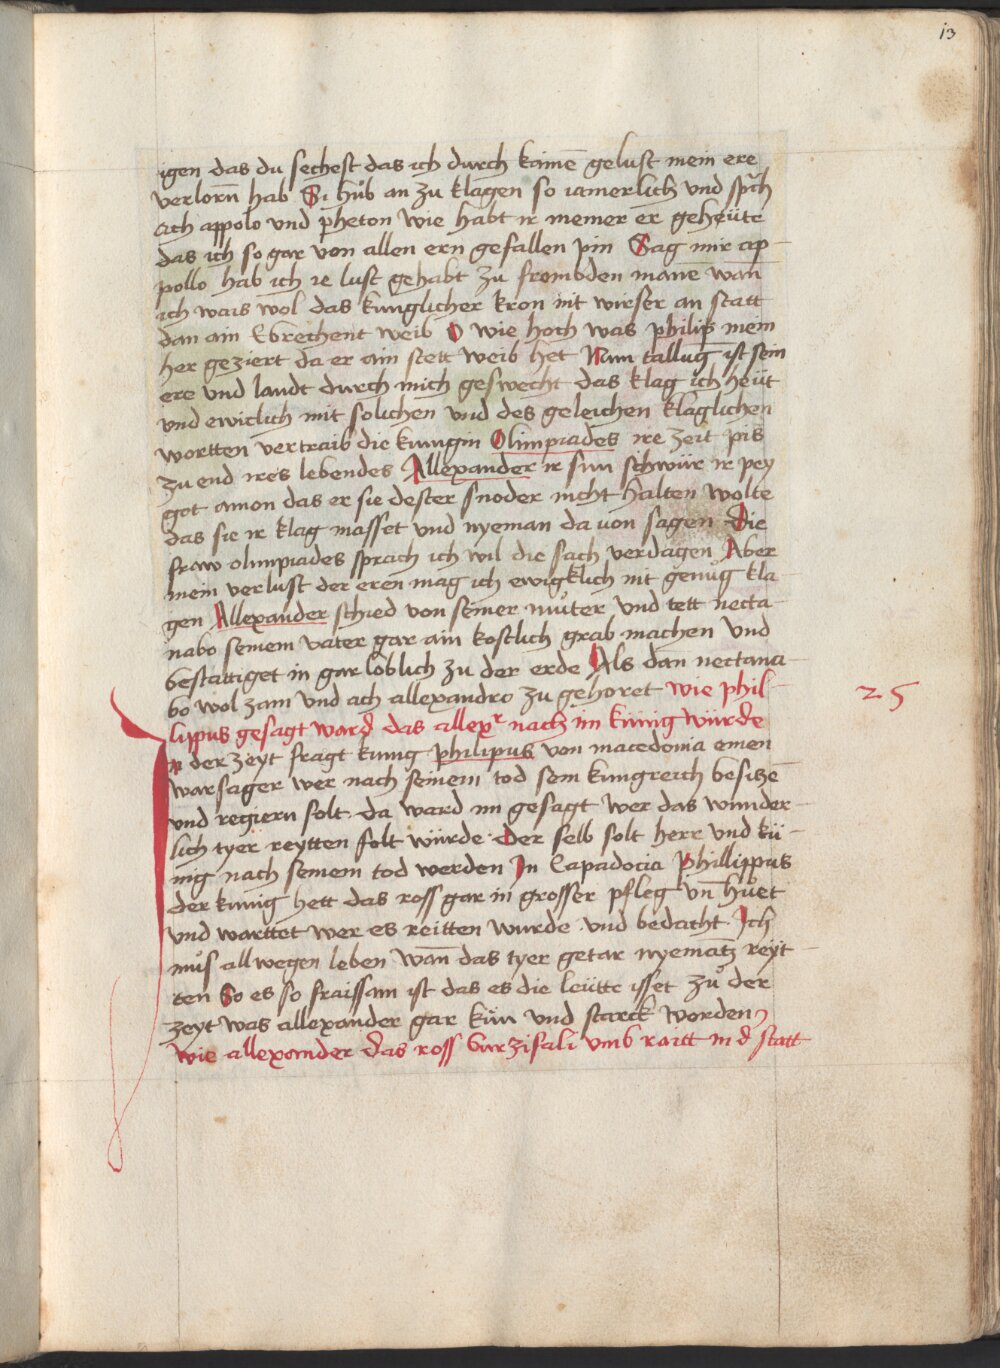 13
igen das du sechest das ich durch kainē gelust mein ere
verlorn̄ hab Si hůb an zu klagen so iamerlich und sp̄ch
ach appolo und pheton wie habt ir meiner er geheüte
das ich so gar von allen ern gefallen pin Sag mir ap-
pollo hab ich ie lust gehabt zu frombden mane wan̄
ich wais wol das kunglicher kron nit wirser an statt
dan ain Ebrechent weib O wie hoch was philip mein
her geziert da er ain stett weib het Nun tallūg ist sein
ere und landt durch mich geswecht das klag ich heüt
und ewiclich mit solichen und des geleichen klaglichen
wortten vertraib die kungin Olimpiades ire zeit pis
zu end ires lebendes Allexander ir sun schwür ir pey
got amon das er sie dester snoder nicht halten wolte
das sie ir klag masset und nyeman da von sagen Die
fraw olimpiades sprach ich wil die sach verdagen Aber
mein verlust der eren mag ich ewigklich nit genůg kla-
gen Allexander schied von seiner můter und tett necta-
nabo seinem vater gar ain kostlich grab machen und
bestattiget in gar loblich zu der erde Als dan nectana-
bo wol zam und ach allexandro zu gehoret wie phil-
25
lippus gesagt ward das allexr nach im künig würde
In der zeyt fragt kunig philipus von macedonia einen
warsager wer nach seinem tod sein kungreich besitzē
und regiern solt da ward im gesagt wer das wunder-
lich tyer reytten solt würde Der selb solt herr und kü-
nig nach seinem tod werden In Capadocia Phillippus
der kunig hett das ross gar in grosser pfleg vn̄ hůet
und warttet wer es reitten wurde und bedacht Ich
můs allwegen leben wan̄ das tyer getar nyemātz reyt-
ten So es so fraissam ist das es die leütte isset zů der
zeyt was allexander gar kün und starck worden
wie allexander das ross buczifali umb raitt in d statt